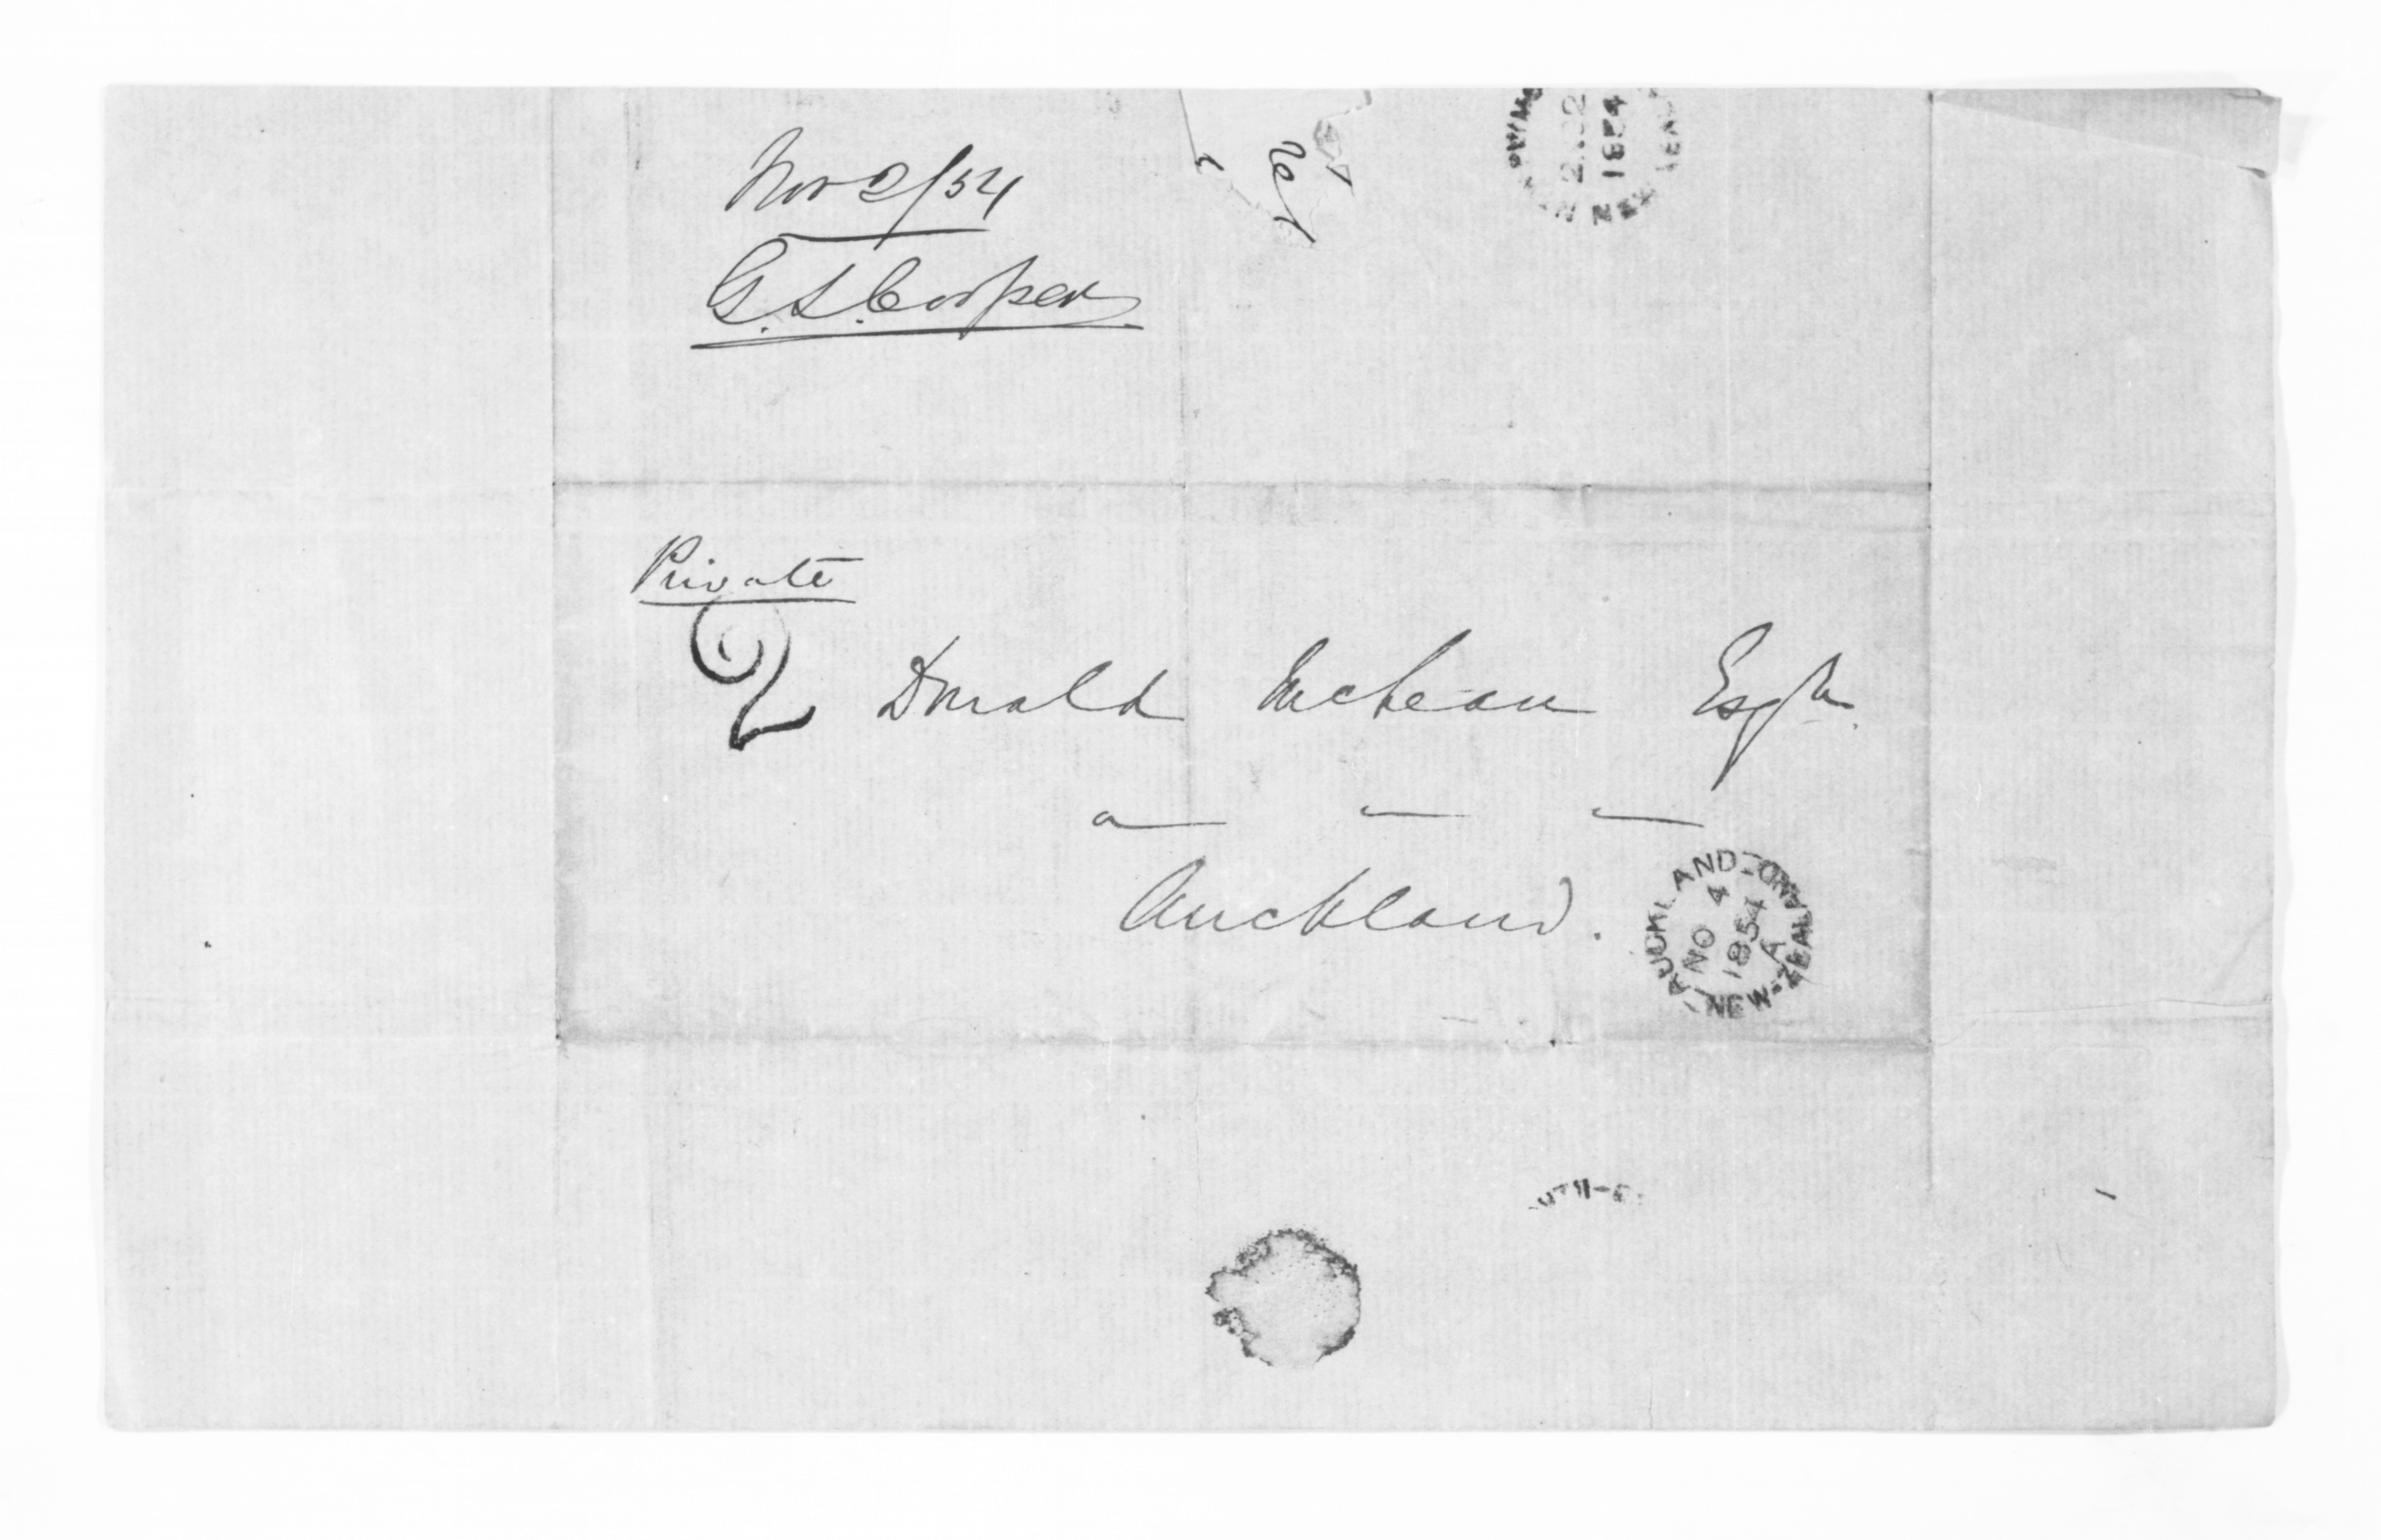 Nov 2/54
G. S. Cooper
1854
Private
2
Donald McLean Esqre.
Auckland.
AUCKLAND
NO 4
1854
A
NEW-ZEALAND